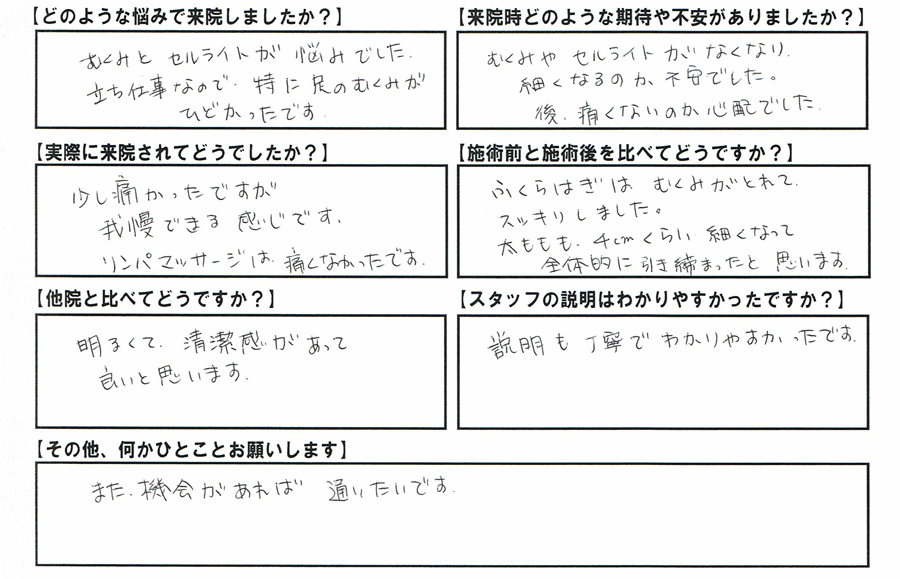 【どのような悩みで来院しましたか？】
むくみと セルライトが 悩みでした.
立ち仕事なので. 特に 足のむくみが
ひどかったです.
【来院時どのような期待や不安がありましたか？】
むくみや セルライトが なくなり.
細くなるのか、不安でした。
後. 痛くないのか心配でした.
【実際に来院されてどうでしたか？】
少し痛かったですが
我慢できる 感じです.
リンパマッサージは. 痛くなかったです.
【施術前と施術後を比べてどうですか？】
ふくらはぎは むくみがとれて.
スッキリしました。
太ももも. 4cmくらい 細くなって
全体的に引き締まったと 思います.
【他院と比べてどうですか？】
明るくて. 清潔感があって
良いと思います.
【スタッフの説明はわかりやすかったですか？】
説明も 丁寧で わかりやすかったです.
【その他、何かひとことお願いします】
また. 機会があれば 通いたいです.